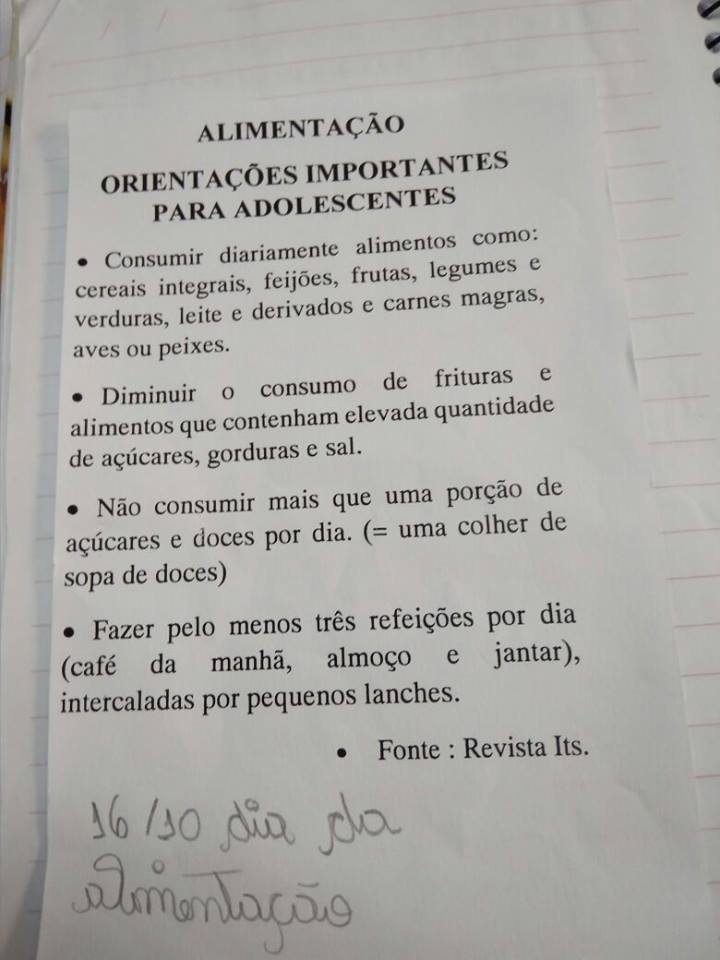 ALIMENTAÇÃO
ORIENTAÇÕES IMPORTANTES
PARA ADOLESCENTES
• Consumir diariamente alimentos como:
cereais integrais, feijões, frutas, legumes e
verduras, leite e derivados e carnes magras,
aves ou peixes.
• Diminuir o consumo de frituras e
alimentos que contenham elevada quantidade
de açúcares, gorduras e sal.
• Não consumir mais que uma porção de
açúcares e doces por dia. (= uma colher de
sopa de doces)
• Fazer pelo menos três refeições por dia
(café da manhã, almoço e jantar),
intercaladas por pequenos lanches.
• Fonte : Revista Its.
16/10 dia da
alimentação